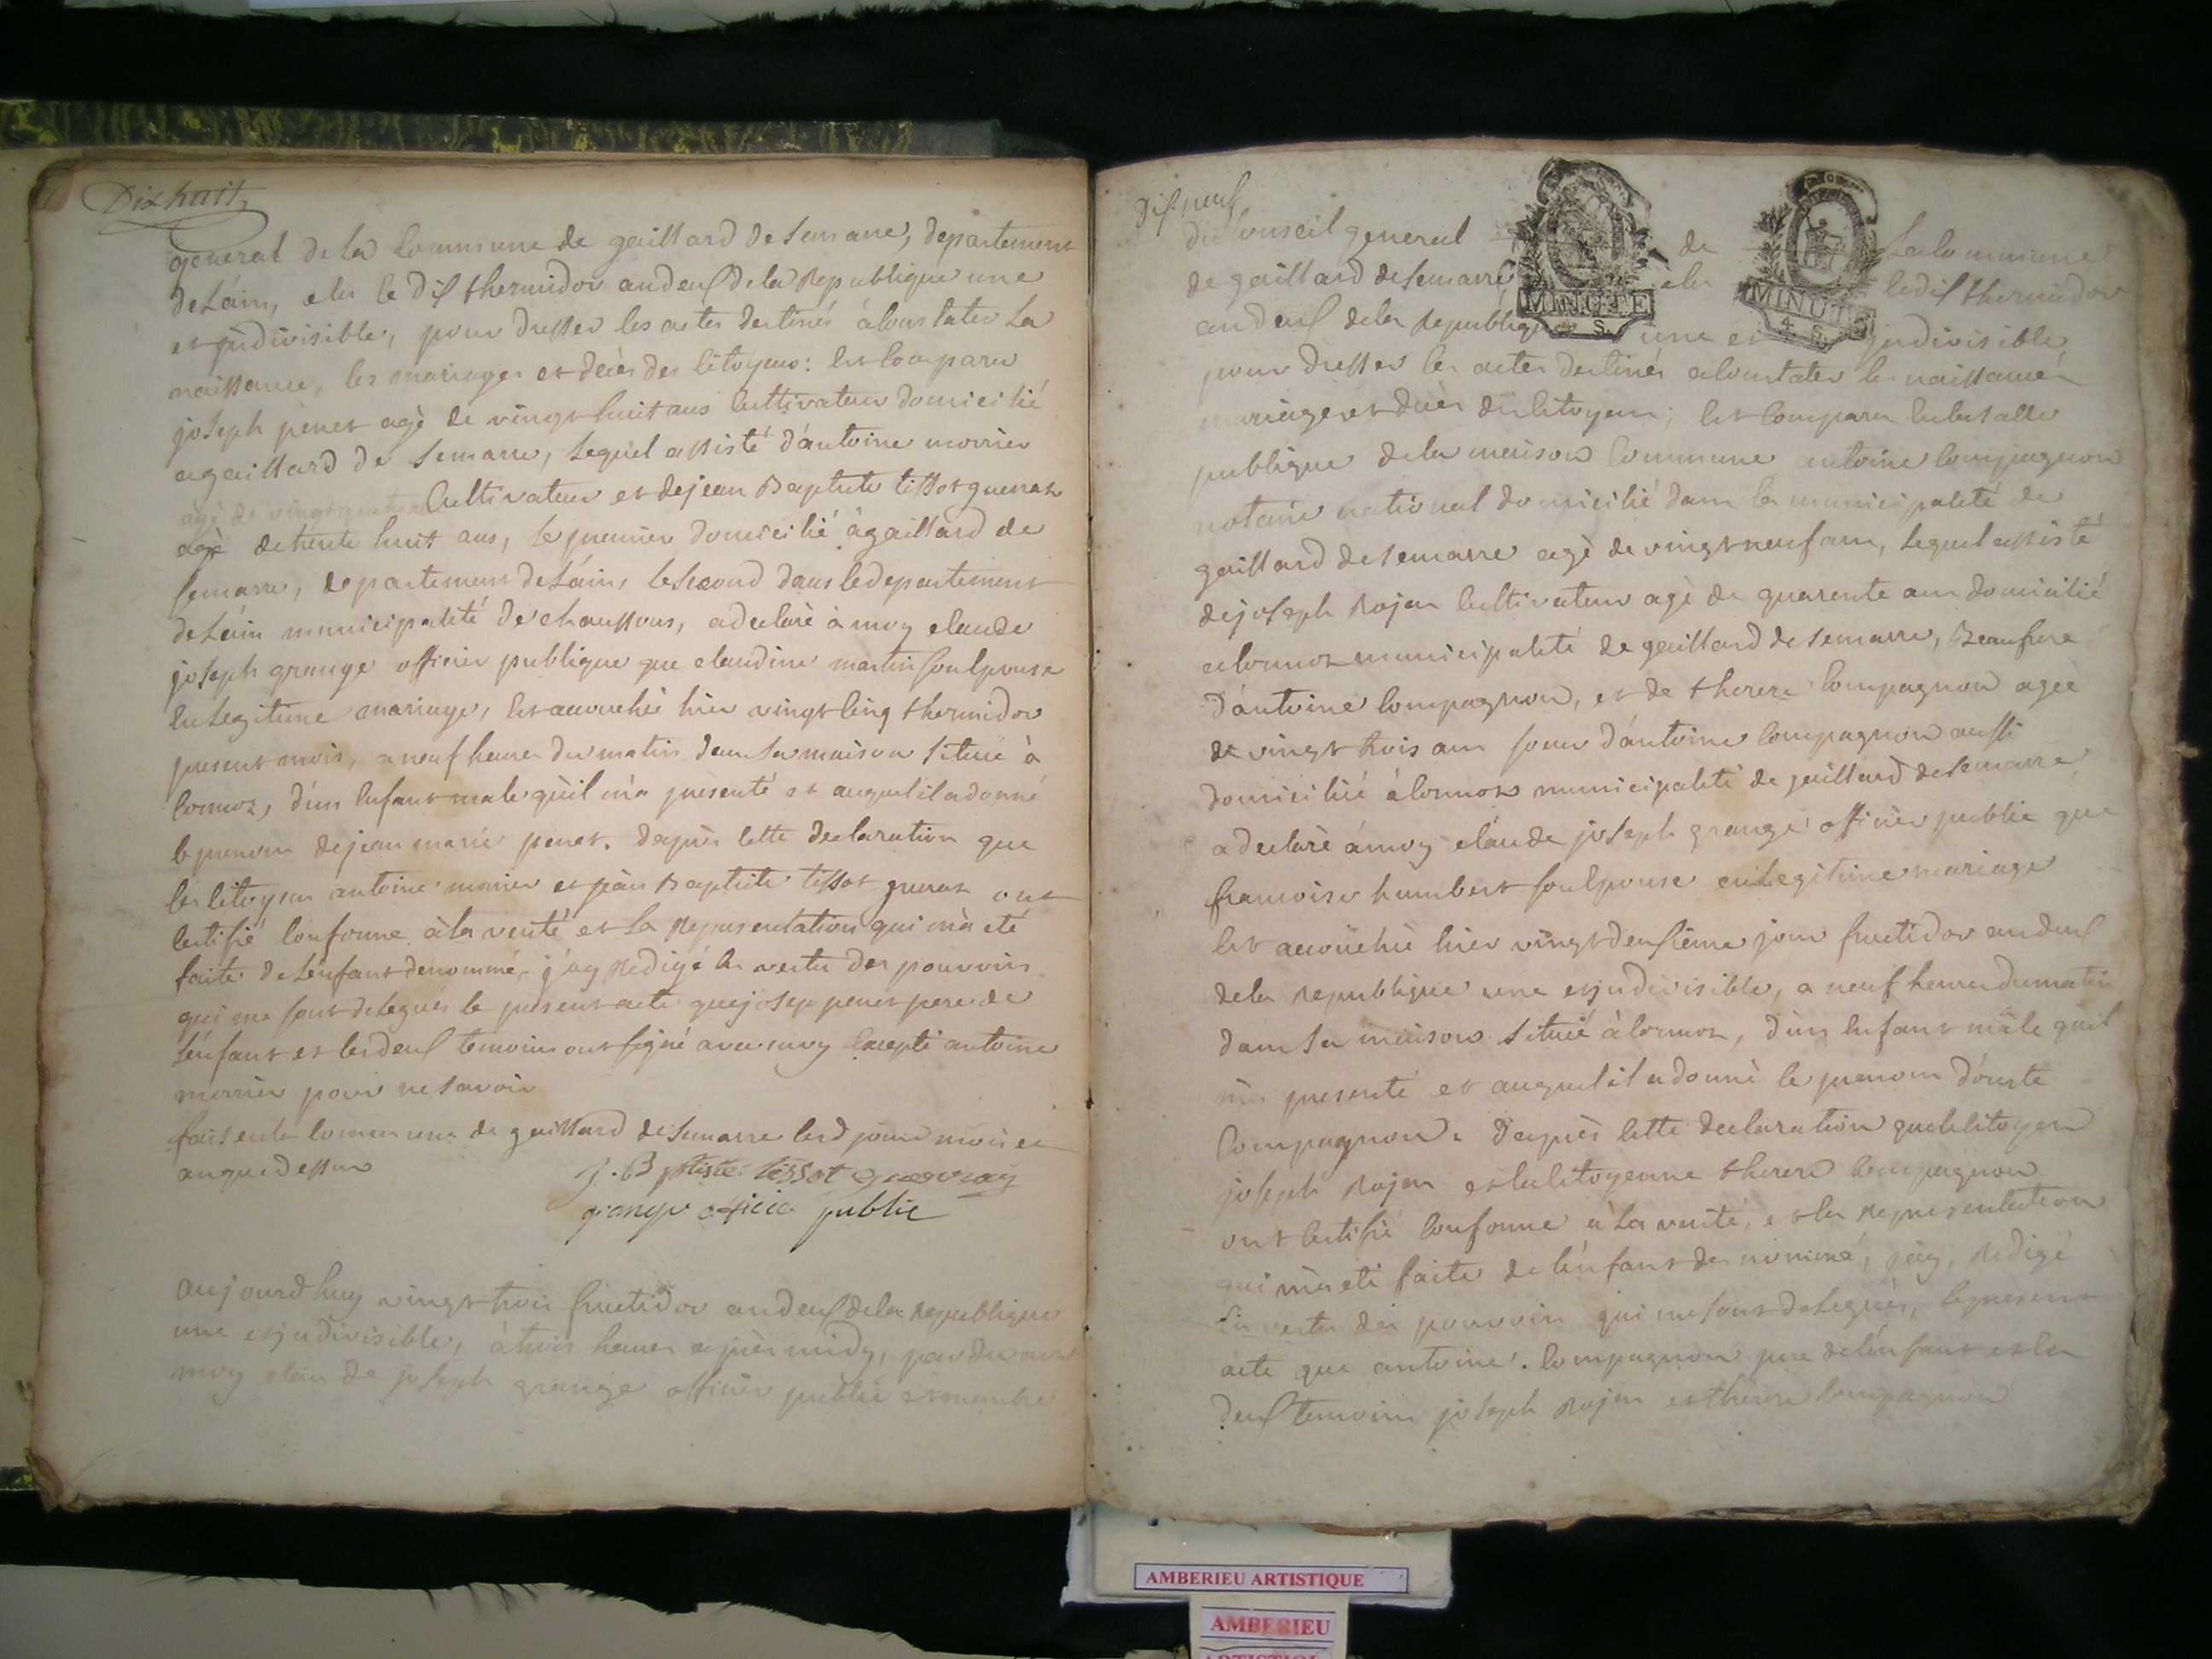 Dix huit
general de la Commune de gaillard de semarre, departement
de Láin, elu le dix thermidor an deux de la Republique une
et jndivisible, pour dresser les actes destinés à Constater La
naissance, les mariages et décès des Citoyens: Est Comparu
joseph penet agè de vingt huit ans Cultivateur domicilié
a gaillard de semarre, Lequel assisté d'antoine morrier
agè de vingt quatre Cultivateur et de jean Baptiste tissot guerraz
agè de trente huit ans, le premier domicilié à gaillard de
semarre, departement de Láin, le second dans le departement
de Láin municipalité de chaussons, a declaré à moy claude
joseph grange officier publique que claudine martin son Epouse
En Legitime mariage, Est accouchée hier vingt Cinq thermidor
present mois, a neuf heures du matin dans sa maison Située à
Cormoz, d'un Enfant male qu'il m'a presenté et auquel il a donné
le prenom de jean marie penet. d'après Cette declaration que
les Citoyens antoine morrier et jean Baptiste tissot guerraz ont
Certifié Conforme à la verité et La Representation qui m'a eté
faite de L'enfant denommé, j'ay Redigé En vertu des pouvoirs
qui me sont delegués le present acte que joseph penet pere de
L'enfant et les deux temoins ont signé avec moy Excepté antoine
morrier pour ne Savoir
fait en la Commune de gaillard de semarre les d jour mois et
an que dessus
J. Bptiste tissot guerraz
grange officie public
aujourd'huy vingt trois fructidor an deux de la Republique
une et jndivisible, à trois heures après midy, par devant
moy claude joseph grange officier public et membre
Dix neuf
du Conseil general de La Commune
de gaillard de semarre elu le dix thermidor
an deux de la Republique une et jndivisible
MINUTE
4 S.
MINUTE
4 S.
pour dresser les actes destinés a Constater les naissances
mariages et decès des Citoyens; Est Comparu En la Salle
publique de la maison Commune antoine Compagnon
notaire national domicilié dans la municipalité de
gaillard de semarre agè de vingt neuf ans, Lequel assisté
de joseph Rojon Cultivateur agè de quarente ans domicilié
a Cormoz municipalité de gaillard de semarre, Beaufrere
d'antoine Compagnon, et de therese Compagnon agèe
de vingt trois ans soeur d'antoine Compagnon aussi
domiciliée à Cormoz municipalité de gaillard de semarre
a declaré à moy claude joseph grange officier public que
francoise humbert son Epouse en Legitime mariage
Est accouchée hier vingt deuxieme jour fructidor an deux
de la republique une et jndivisible, a neuf heures du matin
dans Sa maison Située à Cormoz, d'un Enfant mâle quil
m'a presenté et auquel il a donné le prenom d'oreste
Compagnon. d'après Cette declaration que le Citoyen
joseph Rojon et la Citoyenne therese Compagnon
ont Certifié Conforme à La verité, et la Representation
qui m'a eté faite de L'enfant denommé, j'ay, Redigé
En vertu des pouvoirs qui me sont delegués, le present
acte que antoine. Compagnon pere de L'enfant et les
deux temoins joseph Rojon et therese Compagnon
AMBERIEU ARTISTIQUE
AMBERIEU
ARTISTIQUE